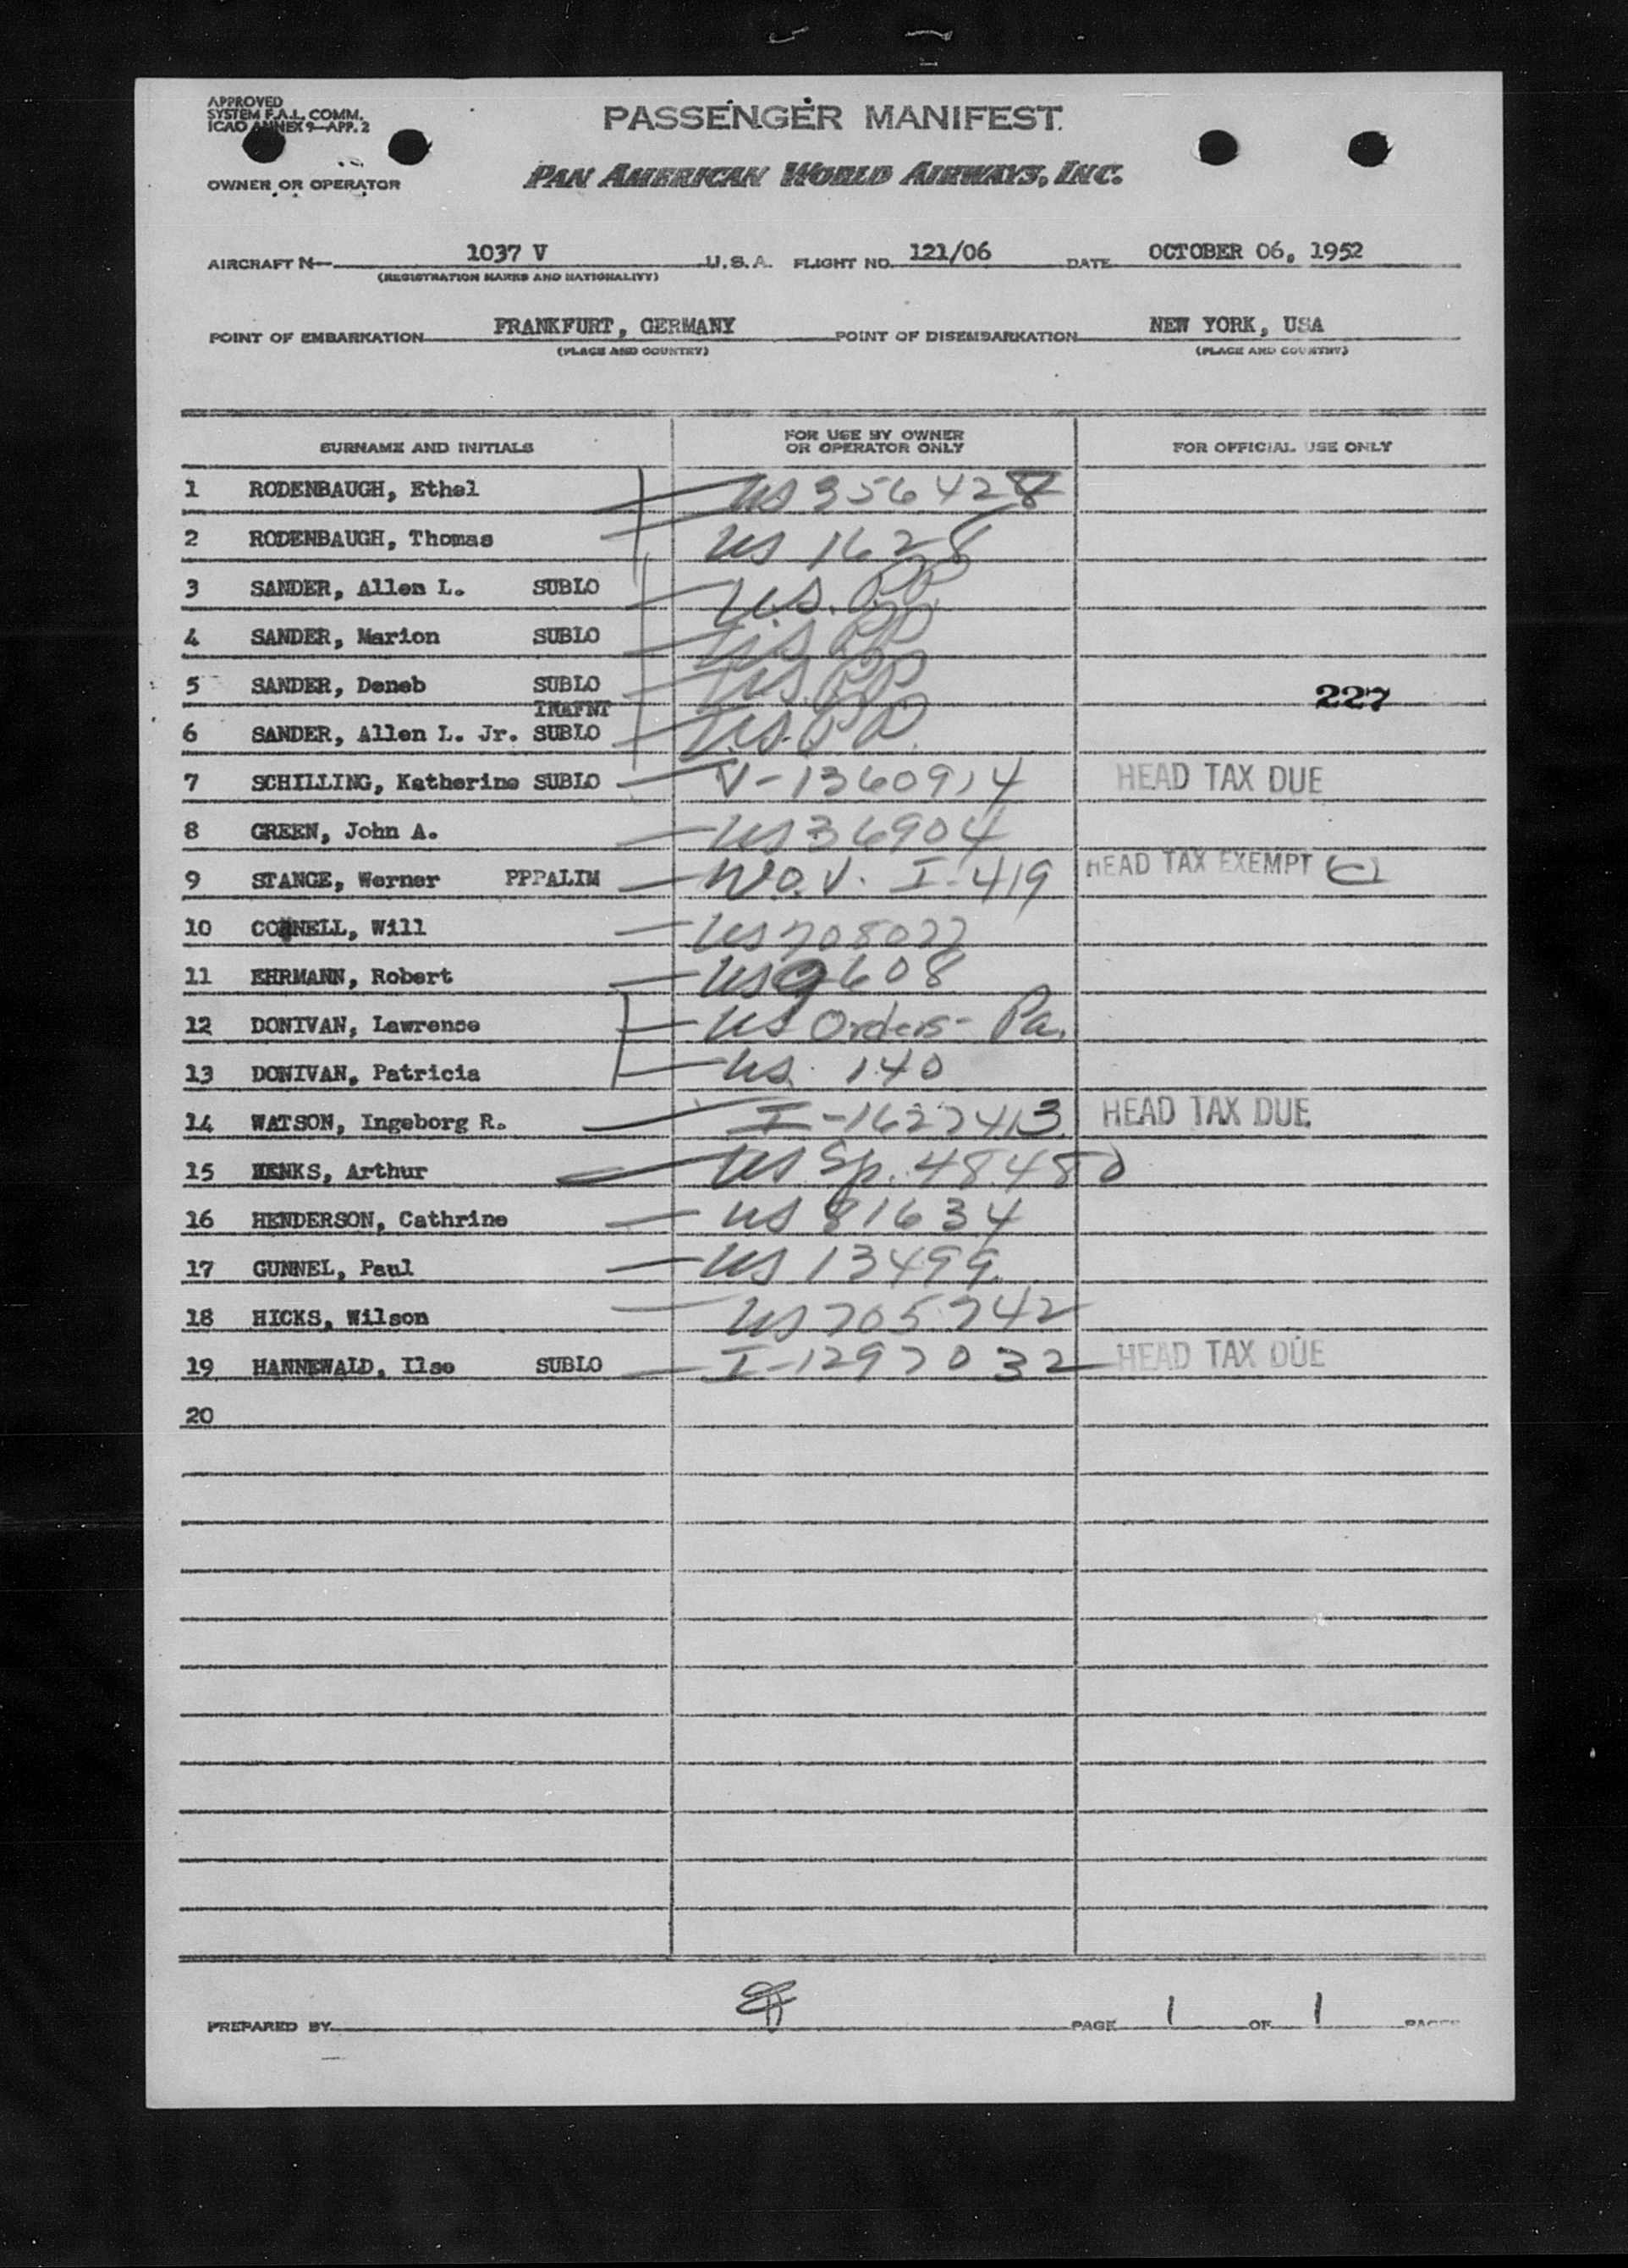 APPROVED
SYSTEM F.A.L. COMM.
ICAO ANNEX 9—APP. 2
PASSENGER MANIFEST
OWNER OR OPERATOR PAN AMERICAN WORLD AIRWAYS, INC.
AIRCRAFT N— 1037 V U.S.A. FLIGHT NO. 121/06 DATE OCTOBER 06, 1952
(REGISTRATION MARKS AND NATIONALITY)
POINT OF EMBARKATION FRANKFURT, GERMANY POINT OF DISEMBARKATION NEW YORK, USA
(PLACE AND COUNTRY) (PLACE AND COUNTRY)
SURNAME AND INITIALS FOR USE BY OWNER OR OPERATOR ONLY FOR OFFICIAL USE ONLY
1 RODENBAUGH, Ethel US 356428
2 RODENBAUGH, Thomas US 1628
3 SANDER, Allen L. SUBLO U.S. PP
4 SANDER, Marion SUBLO U.S. PP
5 SANDER, Deneb SUBLO U.S. PP 227
INAFNT
6 SANDER, Allen L. Jr. SUBLO U.S. PP
7 SCHILLING, Katherine SUBLO V-1360914 HEAD TAX DUE
8 GREEN, John A. US 36904
9 STANGE, Werner PPPALIM W.O.V. I-419 HEAD TAX EXEMPT
10 CORNELL, Will US 708027
11 EHRMANN, Robert US 9608
12 DONIVAN, Lawrence US Orders- Pa.
13 DONIVAN, Patricia US. 140
14 WATSON, Ingeborg R. I-1627413 HEAD TAX DUE
15 HENKS, Arthur US Sp. 48480
16 HENDERSON, Cathrine US 81634
17 GUNNEL, Paul US 13499
18 HICKS, Wilson US 705742
19 HANNEWALD, Ilse SUBLO I-1297032 HEAD TAX DUE
20
PREPARED BY PAGE 1 OF 1 PAGES